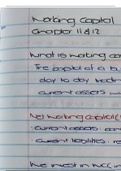 Working Capital
Chapter 11 & 12
What is working ca
The capital of a bu
day to day tradi
current assets
Net working capital (
current assets
current liabilities
We invest in NCC in